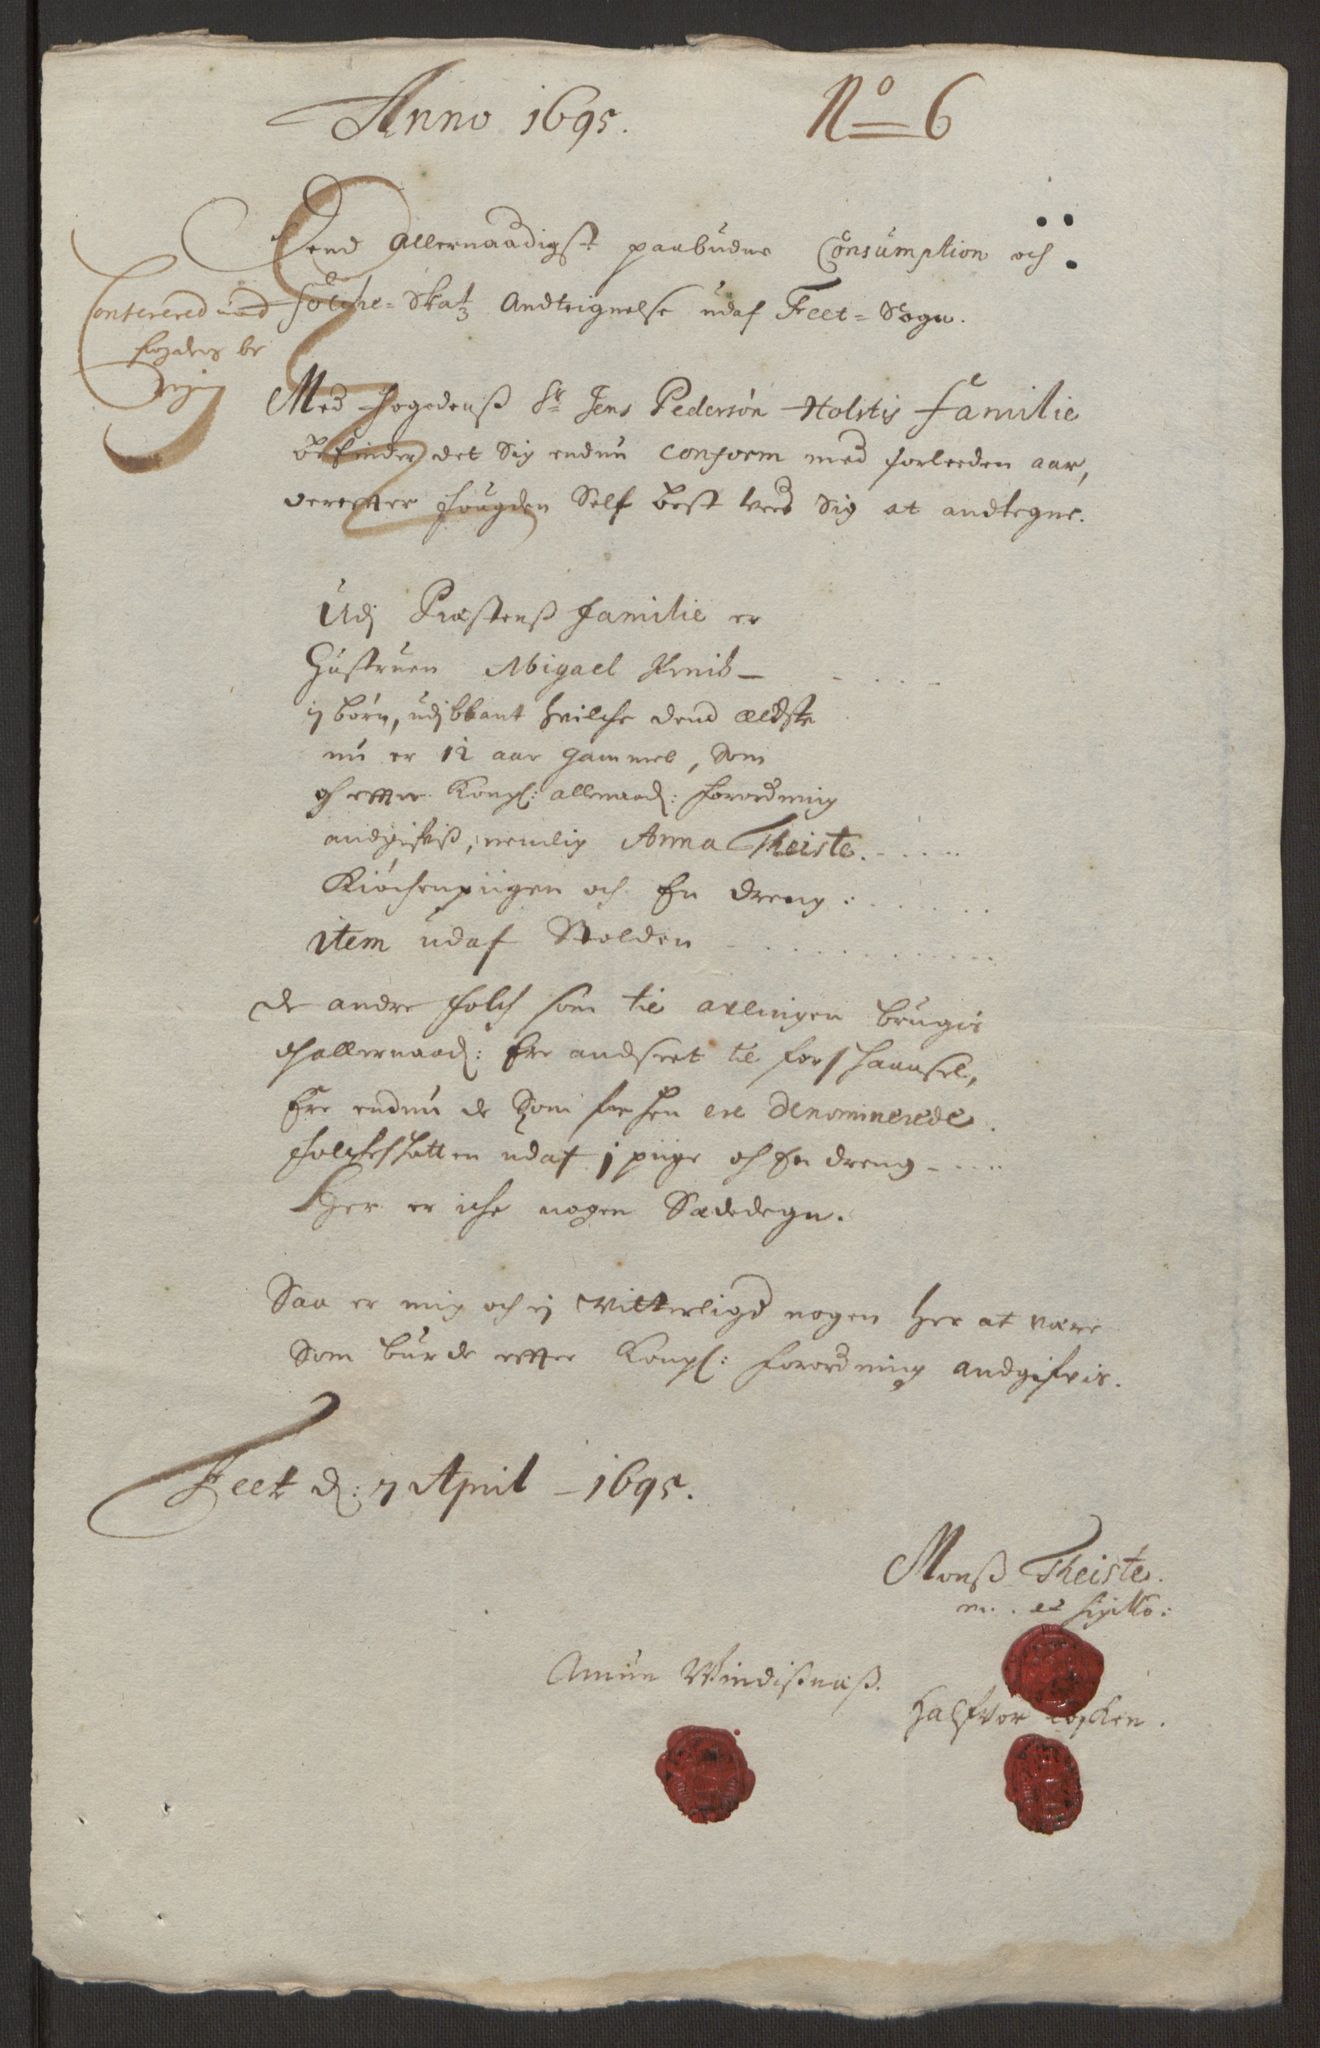 Anno 1695.
No 6
Dend allernaadigst paabudne Consumption och
Folche-Skatz Andteignelse udaf Feet-Sogn.
Conferered med
fogdens be
Med fogedenß Sr Jens Pedersøn Holstis Familie
befinder det sig endnu conform med forleeden aar,
derefter fougden Self best veed sig at andtegne.
Udj Præstenß familie er
Hustruen Abigael
ij børn, udj blant hvilche dend ældste
nu er 12 aar gammel, som
och efter Kongl: allernaad: forordning
andgifviß, nemlig Anna Theiste.
Kiøchenpiigen och En dreng:
item udaf Stolden
de andre folch som til avlingen brugis
och allernaad: Ere andseet til forschaansel,
Ere endnu de som for hen ere denominerede.
folcheschatten udaf j piige och En dreng
Her er iche nogen Sædedegn.
Saa er mig och ej vitterligd nogen her at være
som burde efter Kongl: forordning andgifvis.
Feet d: 7 April 1695.
Monß Theiste.
m. et sigillo:
Amun Windißnæß.
Halfvor